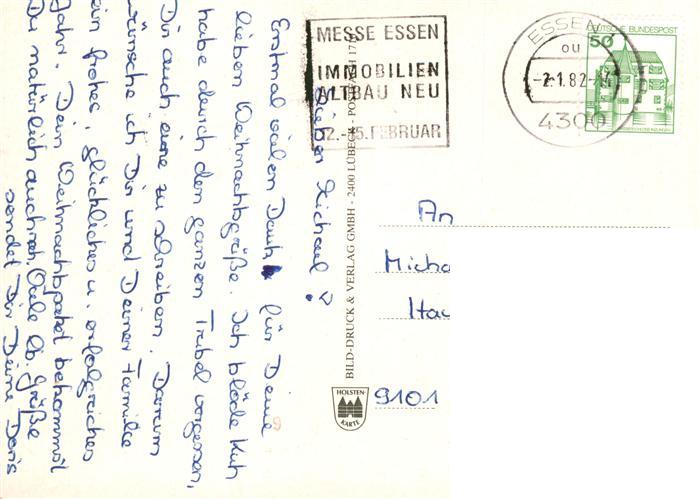 Lieber Michael!
Erstmal vielen Dank für Deine
lieben Weihnachtsgrüße. Ich blöde Kuh
habe durch den ganzen Trubel vergessen,
Dir auch eine zu schreiben. Darum
wünsche ich Dir und Deiner Familie
ein frohes, glückliches u. erfolgreiches
Jahr. Dein Weihnachtspaket bekommst
Du natürlich auch noch. Viele lb. Grüße
sendet Dir Deine Doris
MESSE ESSEN
IMMOBILIEN
ALTBAU NEU
12.-15. FEBRUAR
ESSEN
ou
-2.1.82-
4300
50
DEUTSCHE BUNDESPOST
BILD-DRUCK & VERLAG GMBH - 2400 LÜBECK - POSTFACH
HOLSTEN
KARTE
An
Micha
Hau
9101